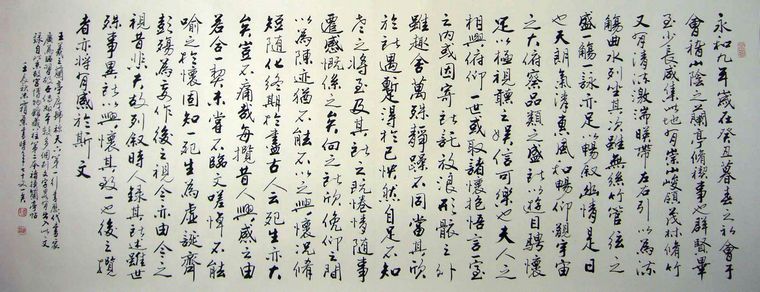 永和九年歲在癸丑暮春之初會于
會稽山陰之蘭亭脩禊事也群賢畢
至少長咸集此地有崇山峻領茂林脩竹
又有清流激湍映帶左右引以為流
觴曲水列坐其次雖無絲竹管弦之
盛一觴一詠亦足以暢叙幽情是日
也天朗氣清惠風和暢仰觀宇宙
之大俯察品類之盛所以遊目騁懷
足以極視聽之娛信可樂也夫人之
相與俯仰一世或取諸懷抱悟言一室
之內或因寄所託放浪形骸之外
雖趣舍萬殊靜躁不同當其欣
於所遇暫得於己怏然自足不知
老之將至及其所之既惓情隨事
遷感慨係之矣向之所欣俛仰之間
以為陳迹猶不能不以之興懷況脩
短隨化終期於盡古人云死生亦大
矣豈不痛哉每攬昔人興感之由
若合一契未嘗不臨文嗟悼不能
喻之於懷固知一死生為虛誕齊
彭殤為妄作後之視今亦由今之
視昔悲夫故列叙時人錄其所述雖世
殊事異所以興懷其致一也後之攬
者亦將有感於斯文
王羲之蘭亭序